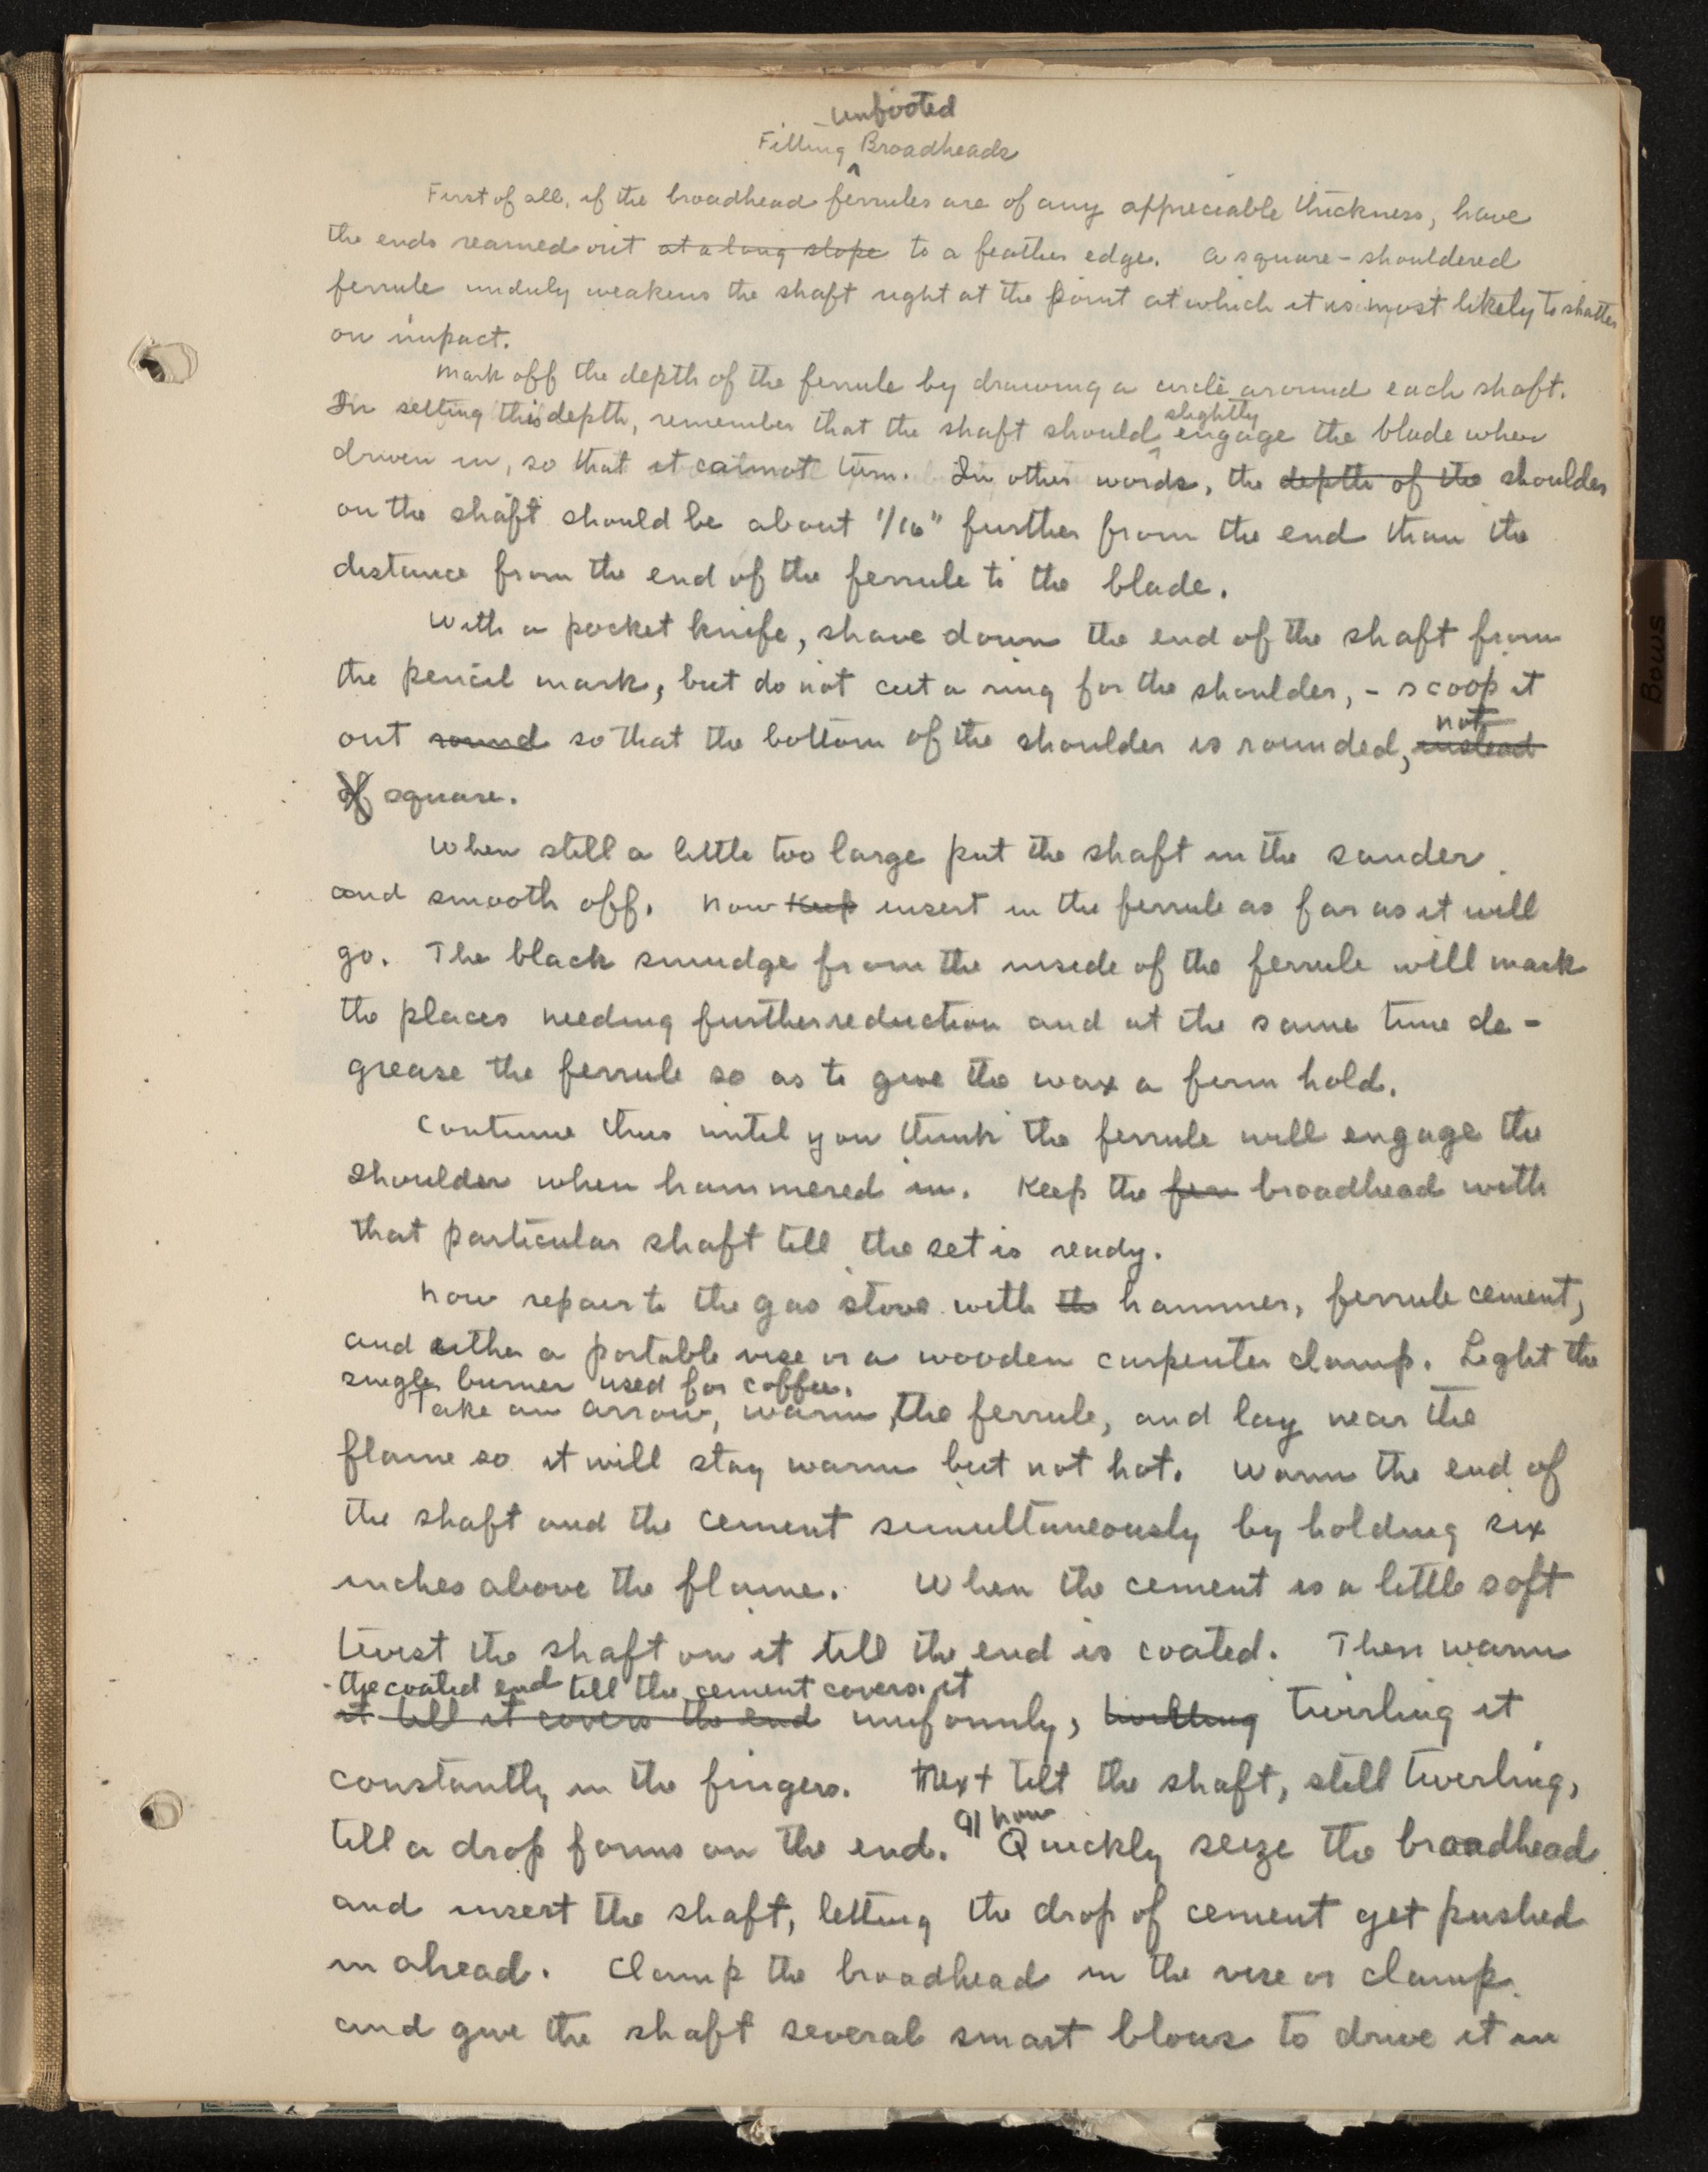 unfooted
Fitting ^ Broadheads
First of all, if the broadhead ferrules are of any appreciable thickness, have
the ends reamed out at a long slope to a feather edge. A square-shouldered
ferrule unduly weakens the shaft right at the point at which it is most likely to shatter
on impact.
Mark off the depth of the ferrule by drawing a circle around each shaft.
slightly
In setting this depth, remember that the shaft should ^ engage the blade when
driven in, so that it cannot turn. In other words, the depth of the shoulder
on the shaft should be about 1/16" further from the end than the
distance from the end of the ferrule to the blade.
With a pocket knife, shave down the end of the shaft from
the pencil mark, but do not cut a ring for the shoulder, - scoop it
not
out round so that the bottom of the shoulder is rounded, instead
of square.
When still a little too large put the shaft in the sander
and smooth off. Now keep insert in the ferrule as far as it will
go. The black smudge from the inside of the ferrule will mark
the places needing further reduction and at the same time de-
grease the ferrule so as to give the wax a firm hold.
Continue thus until you think the ferrule will engage the
shoulder when hammered in. Keep the fer broadhead with
that particular shaft till the set is ready.
Now repair to the gas stove with the hammer, ferrule cement,
and either a portable vise or a wooden carpenter clamp. Light the
single burner used for coffee.
Take an arrow, warm the ferrule, and lay near the
flame so it will stay warm but not hot. Warm the end of
the shaft and the cement simultaneously by holding six
inches above the flame. When the cement is a little soft
twist the shaft on it till the end is coated. Then warm
the coated end till the cement covers it
it till it covers the end uniformly, twilling twirling it
constantly in the fingers. Next tilt the shaft, still twirling,
now
till a drop forms on the end. Quickly seize the broadhead
and insert the shaft, letting the drop of cement get pushed
in ahead. Clamp the broadhead in the vise or clamp
and give the shaft several smart blows to drive it in
Bows